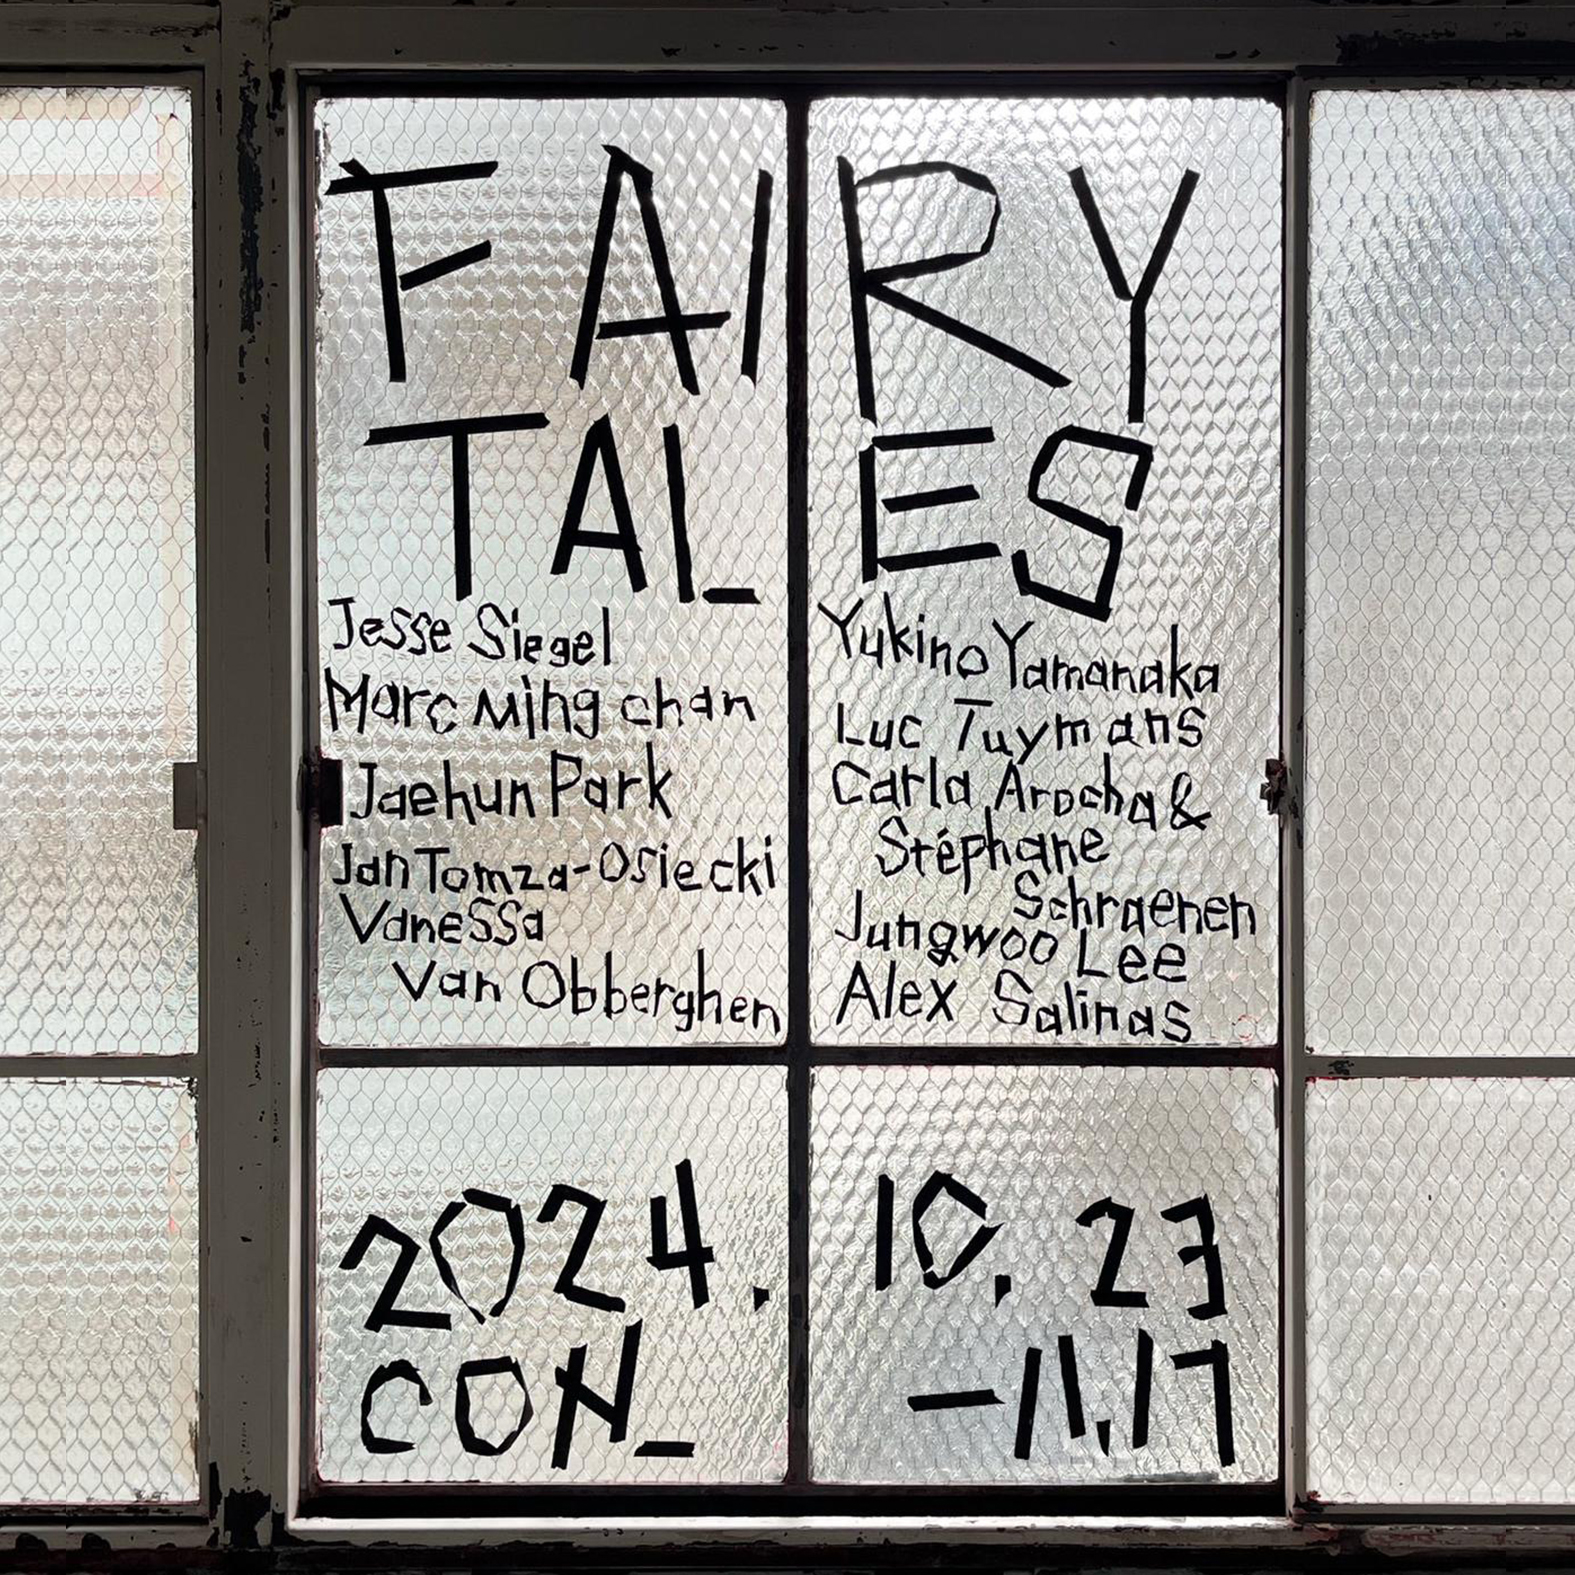 FAIRY
TALES
Jesse Siegel
Marc Ming chan
Jaehun Park
Jan Tomza-Osiecki
Vanessa
Van Obberghen
Yukino Yamanaka
Luc Tuymans
Carla Arocha &
Stéphane
Schraenen
Jungwoo Lee
Alex Salinas
2024. 10. 23
CON_ -11.17